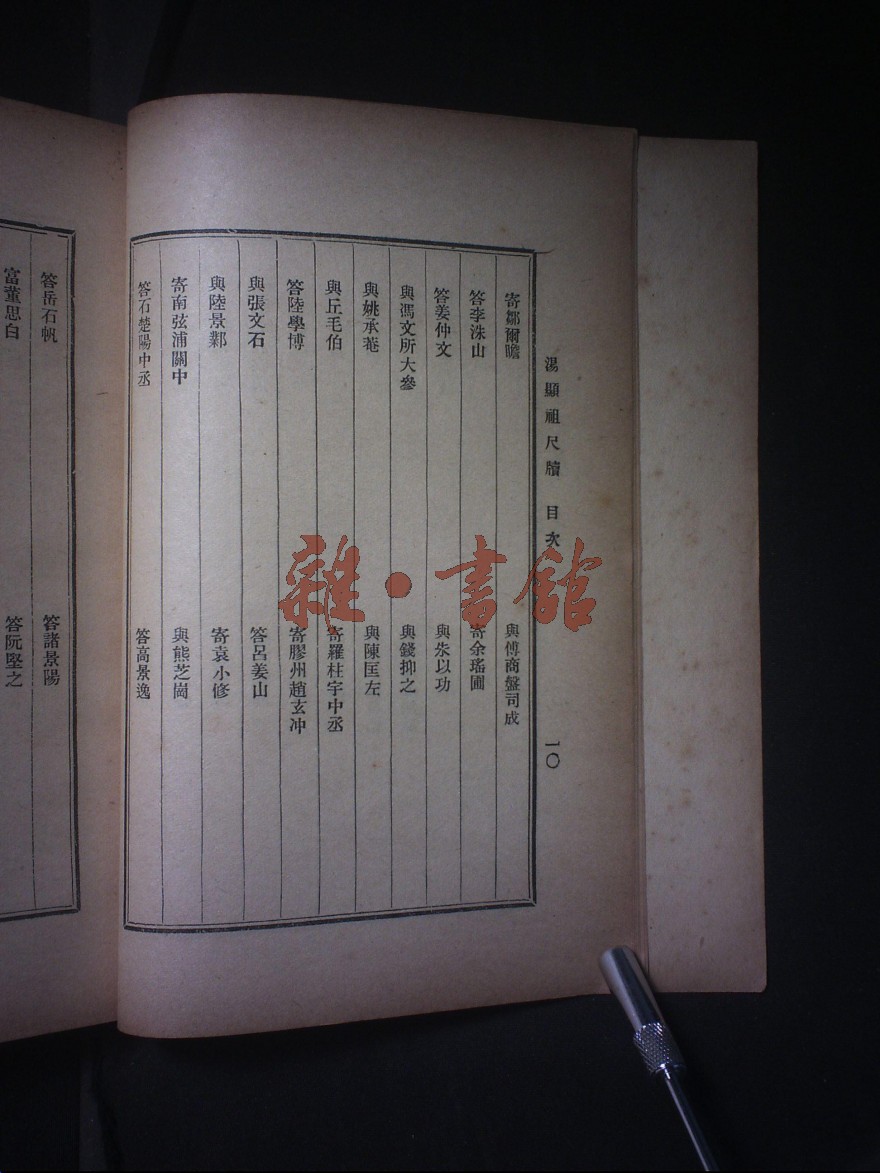 湯顯祖尺牘 目次 一〇
寄鄒爾瞻 與傅商盤司成
答李洙山 寄余瑤圃
答姜仲文 與朱以功
與馮文所大參 與錢抑之
與姚承菴 與陳匡左
與丘毛伯 寄羅柱宇中丞
答陸學博 寄膠州趙玄冲
與張文石 答呂姜山
與陸景鄴 寄袁小修
寄南弦浦關中 與熊芝崗
答石楚陽中丞 答高景逸
答岳石帆 答諸景陽
董思白 答阮堅之
雜·書館